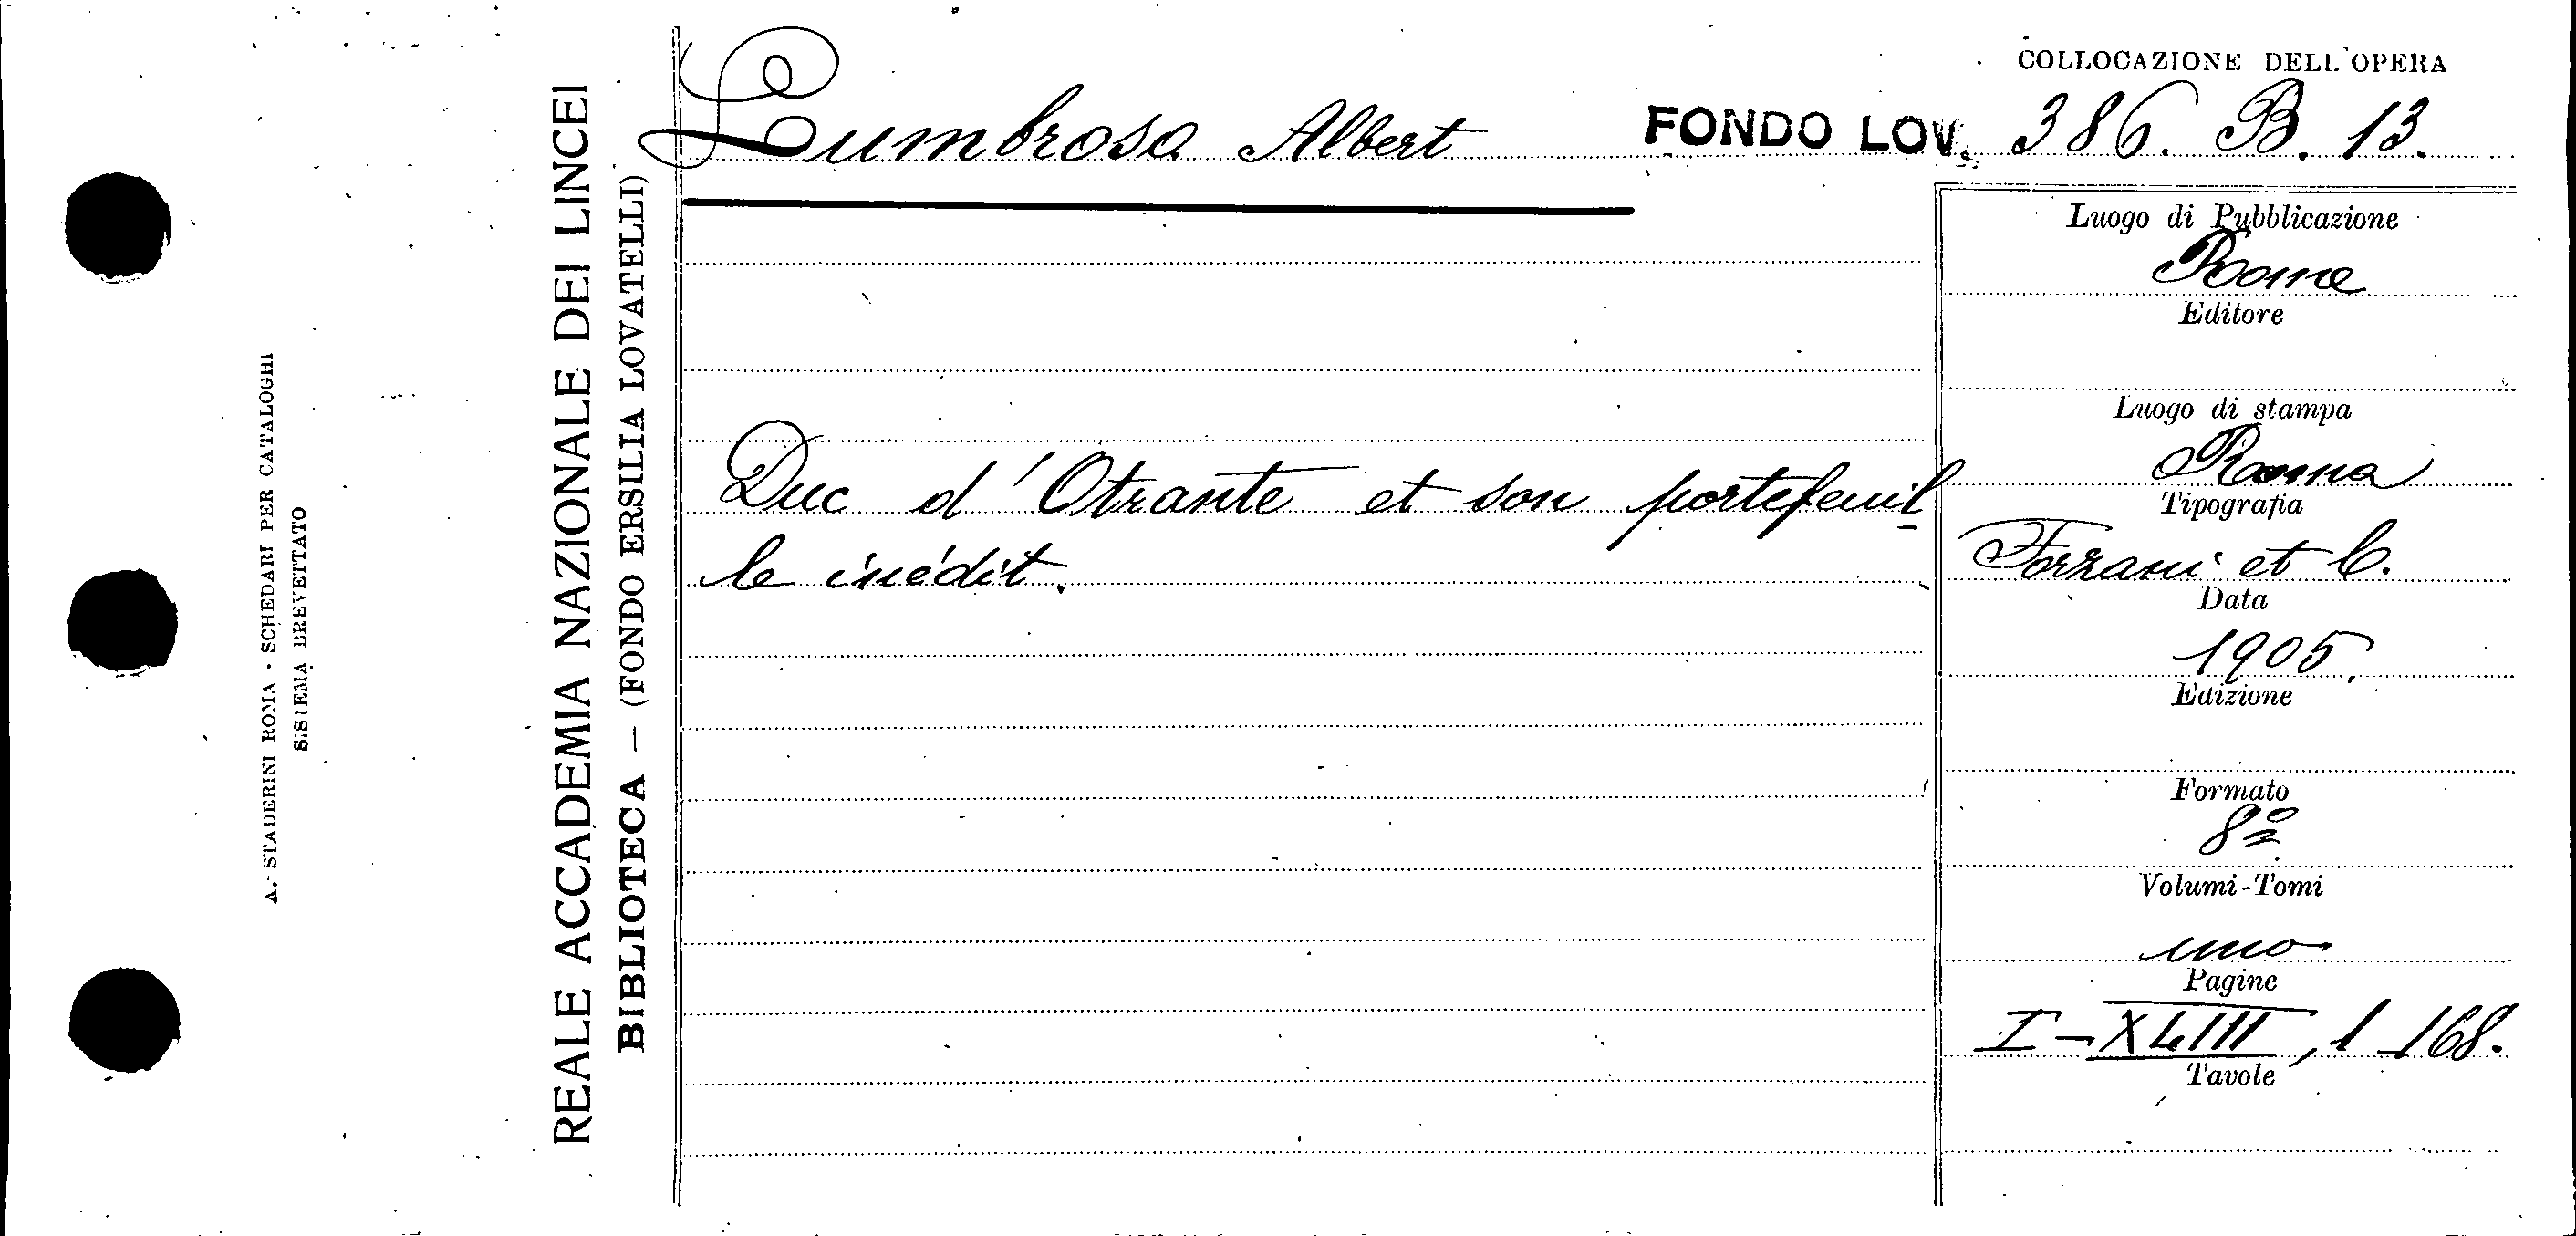 A. STADERINI ROMA - SCHEDARI PER CATALOGHI
SISTEMA BREVETTATO
REALE ACCADEMIA NAZIONALE DEI LINCEI
BIBLIOTECA — (FONDO ERSILIA LOVATELLI)
COLLOCAZIONE DELL'OPERA
Lumbroso Albert FONDO LOV. 386. B. 13.
Duc d'Otrante et son portefeuil
le inédit.
Luogo di Pubblicazione
Rome
Editore
Luogo di stampa
Roma
Tipografia
Forzani et C.
Data
1905.
Edizione
Formato
8º
Volumi-Tomi
uno
Pagine
I-XLIII, 1-168.
Tavole